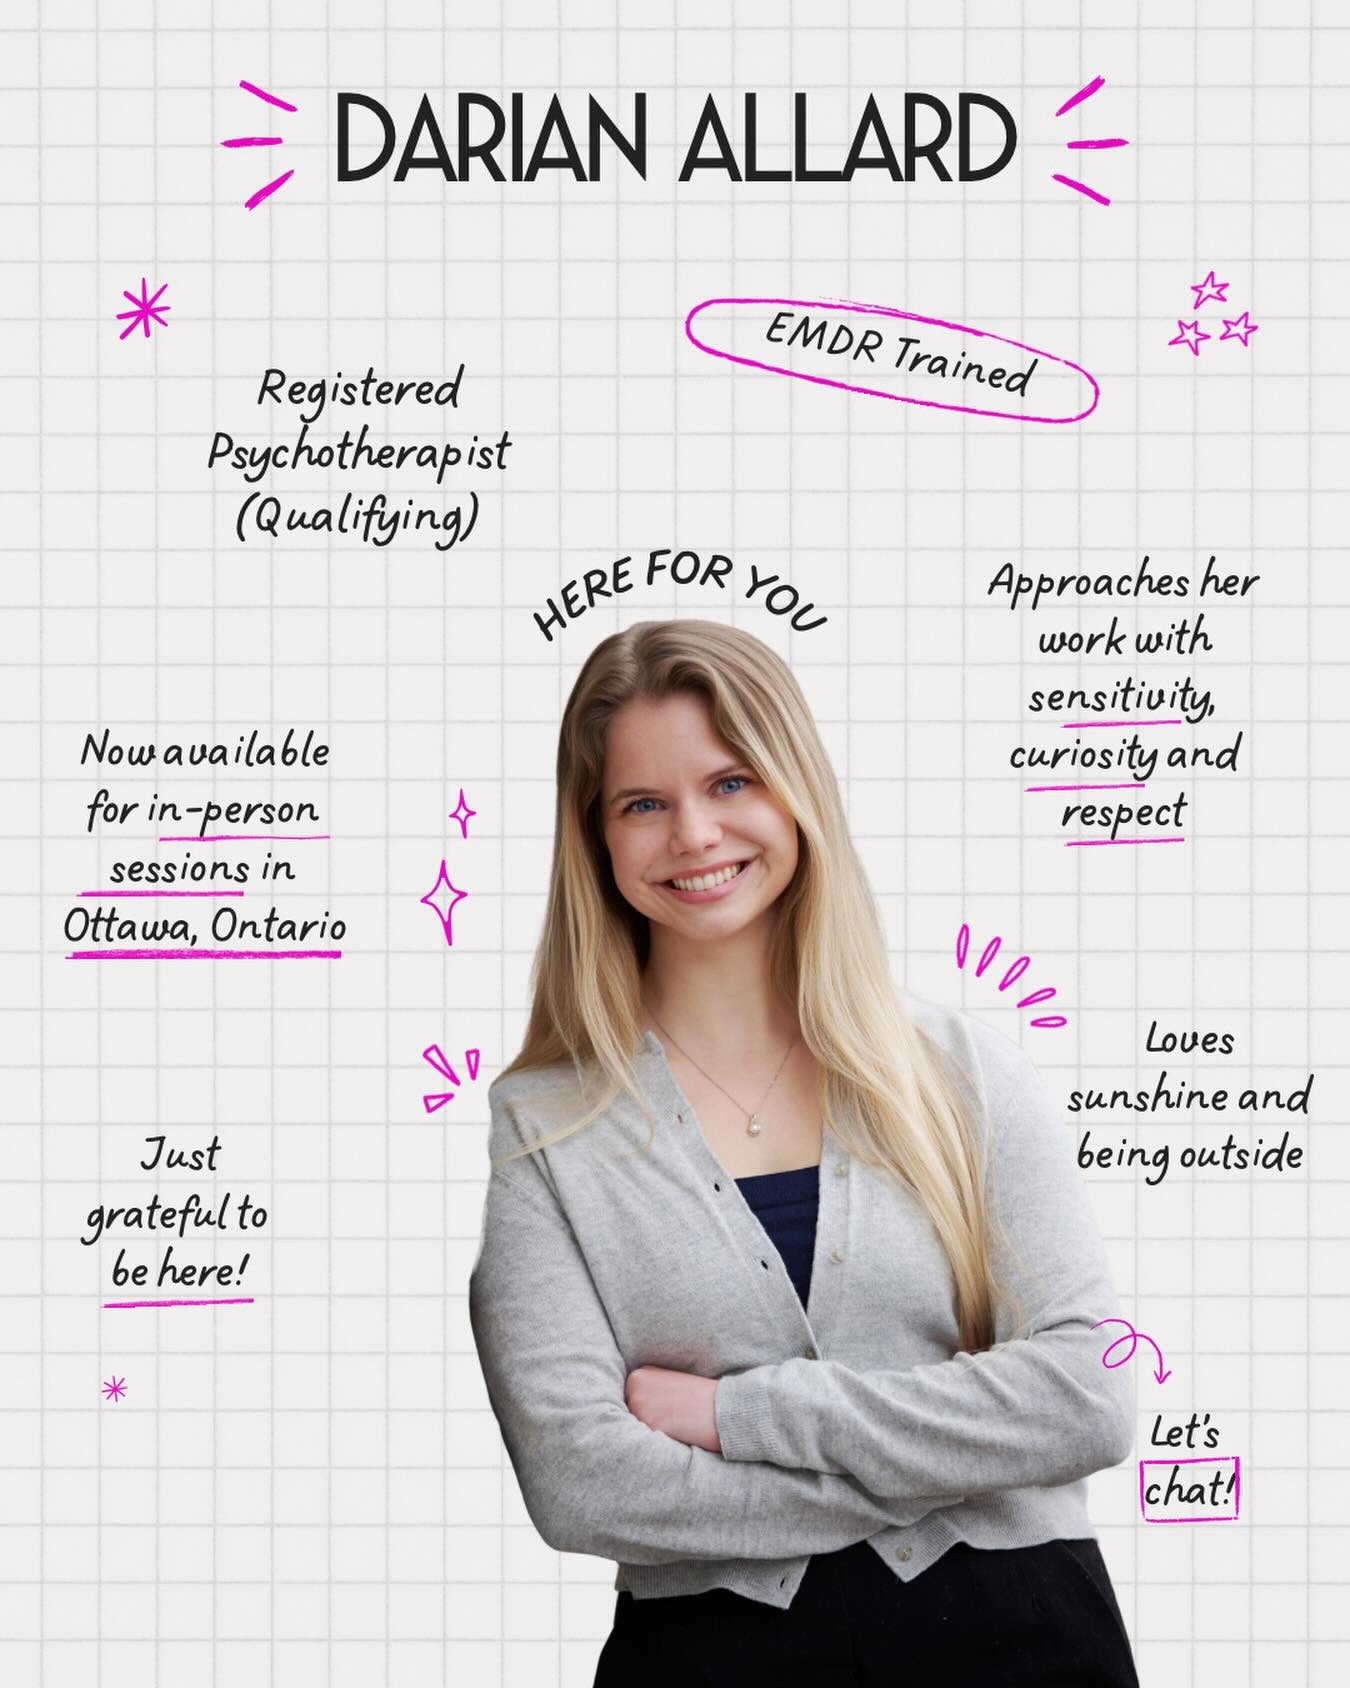 DARIAN ALLARD
EMDR Trained
Registered
Psychotherapist
(Qualifying)
HERE FOR YOU
Approaches her
work with
sensitivity,
curiosity and
respect
Now available
for in-person
sessions in
Ottawa, Ontario
Loves
sunshine and
being outside
Just
grateful to
be here!
Let's
chat!